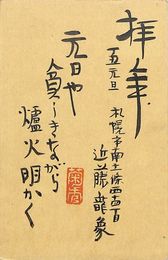 拜年
五元旦
札幌市南十條西四百
近藤龍象
元日や
貧しきながら
爐火明かく